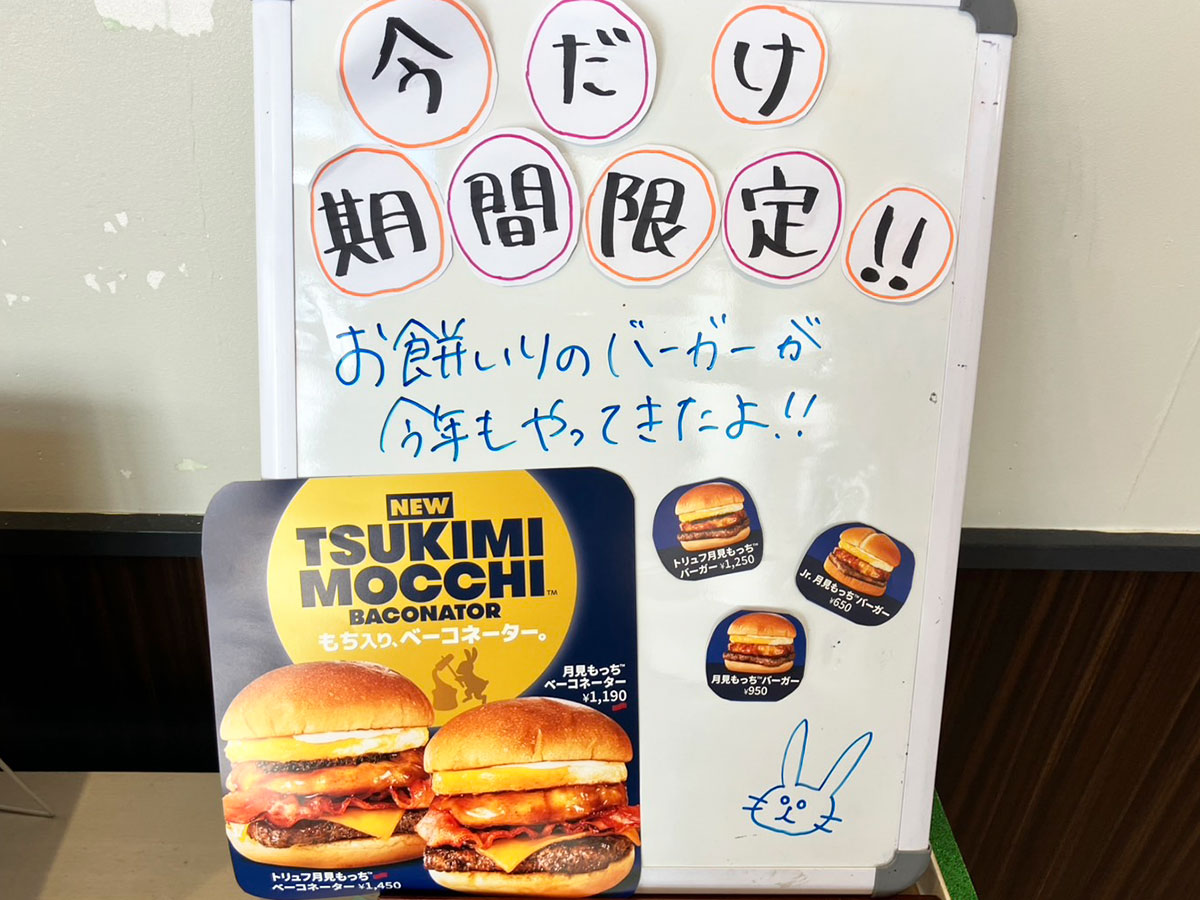 今だけ
期間限定!!
お餅いりのバーガーが
今年もやってきたよ!!
NEW
TSUKIMI
MOCCHI™
BACONATOR
もち入り、ベーコネーター。
月見もっち™
ベーコネーター
¥1,190
トリュフ月見もっち™
ベーコネーター ¥1,450
トリュフ月見もっち™
バーガー ¥1,250
Jr. 月見もっち™バーガー
¥650
月見もっち™バーガー
¥950